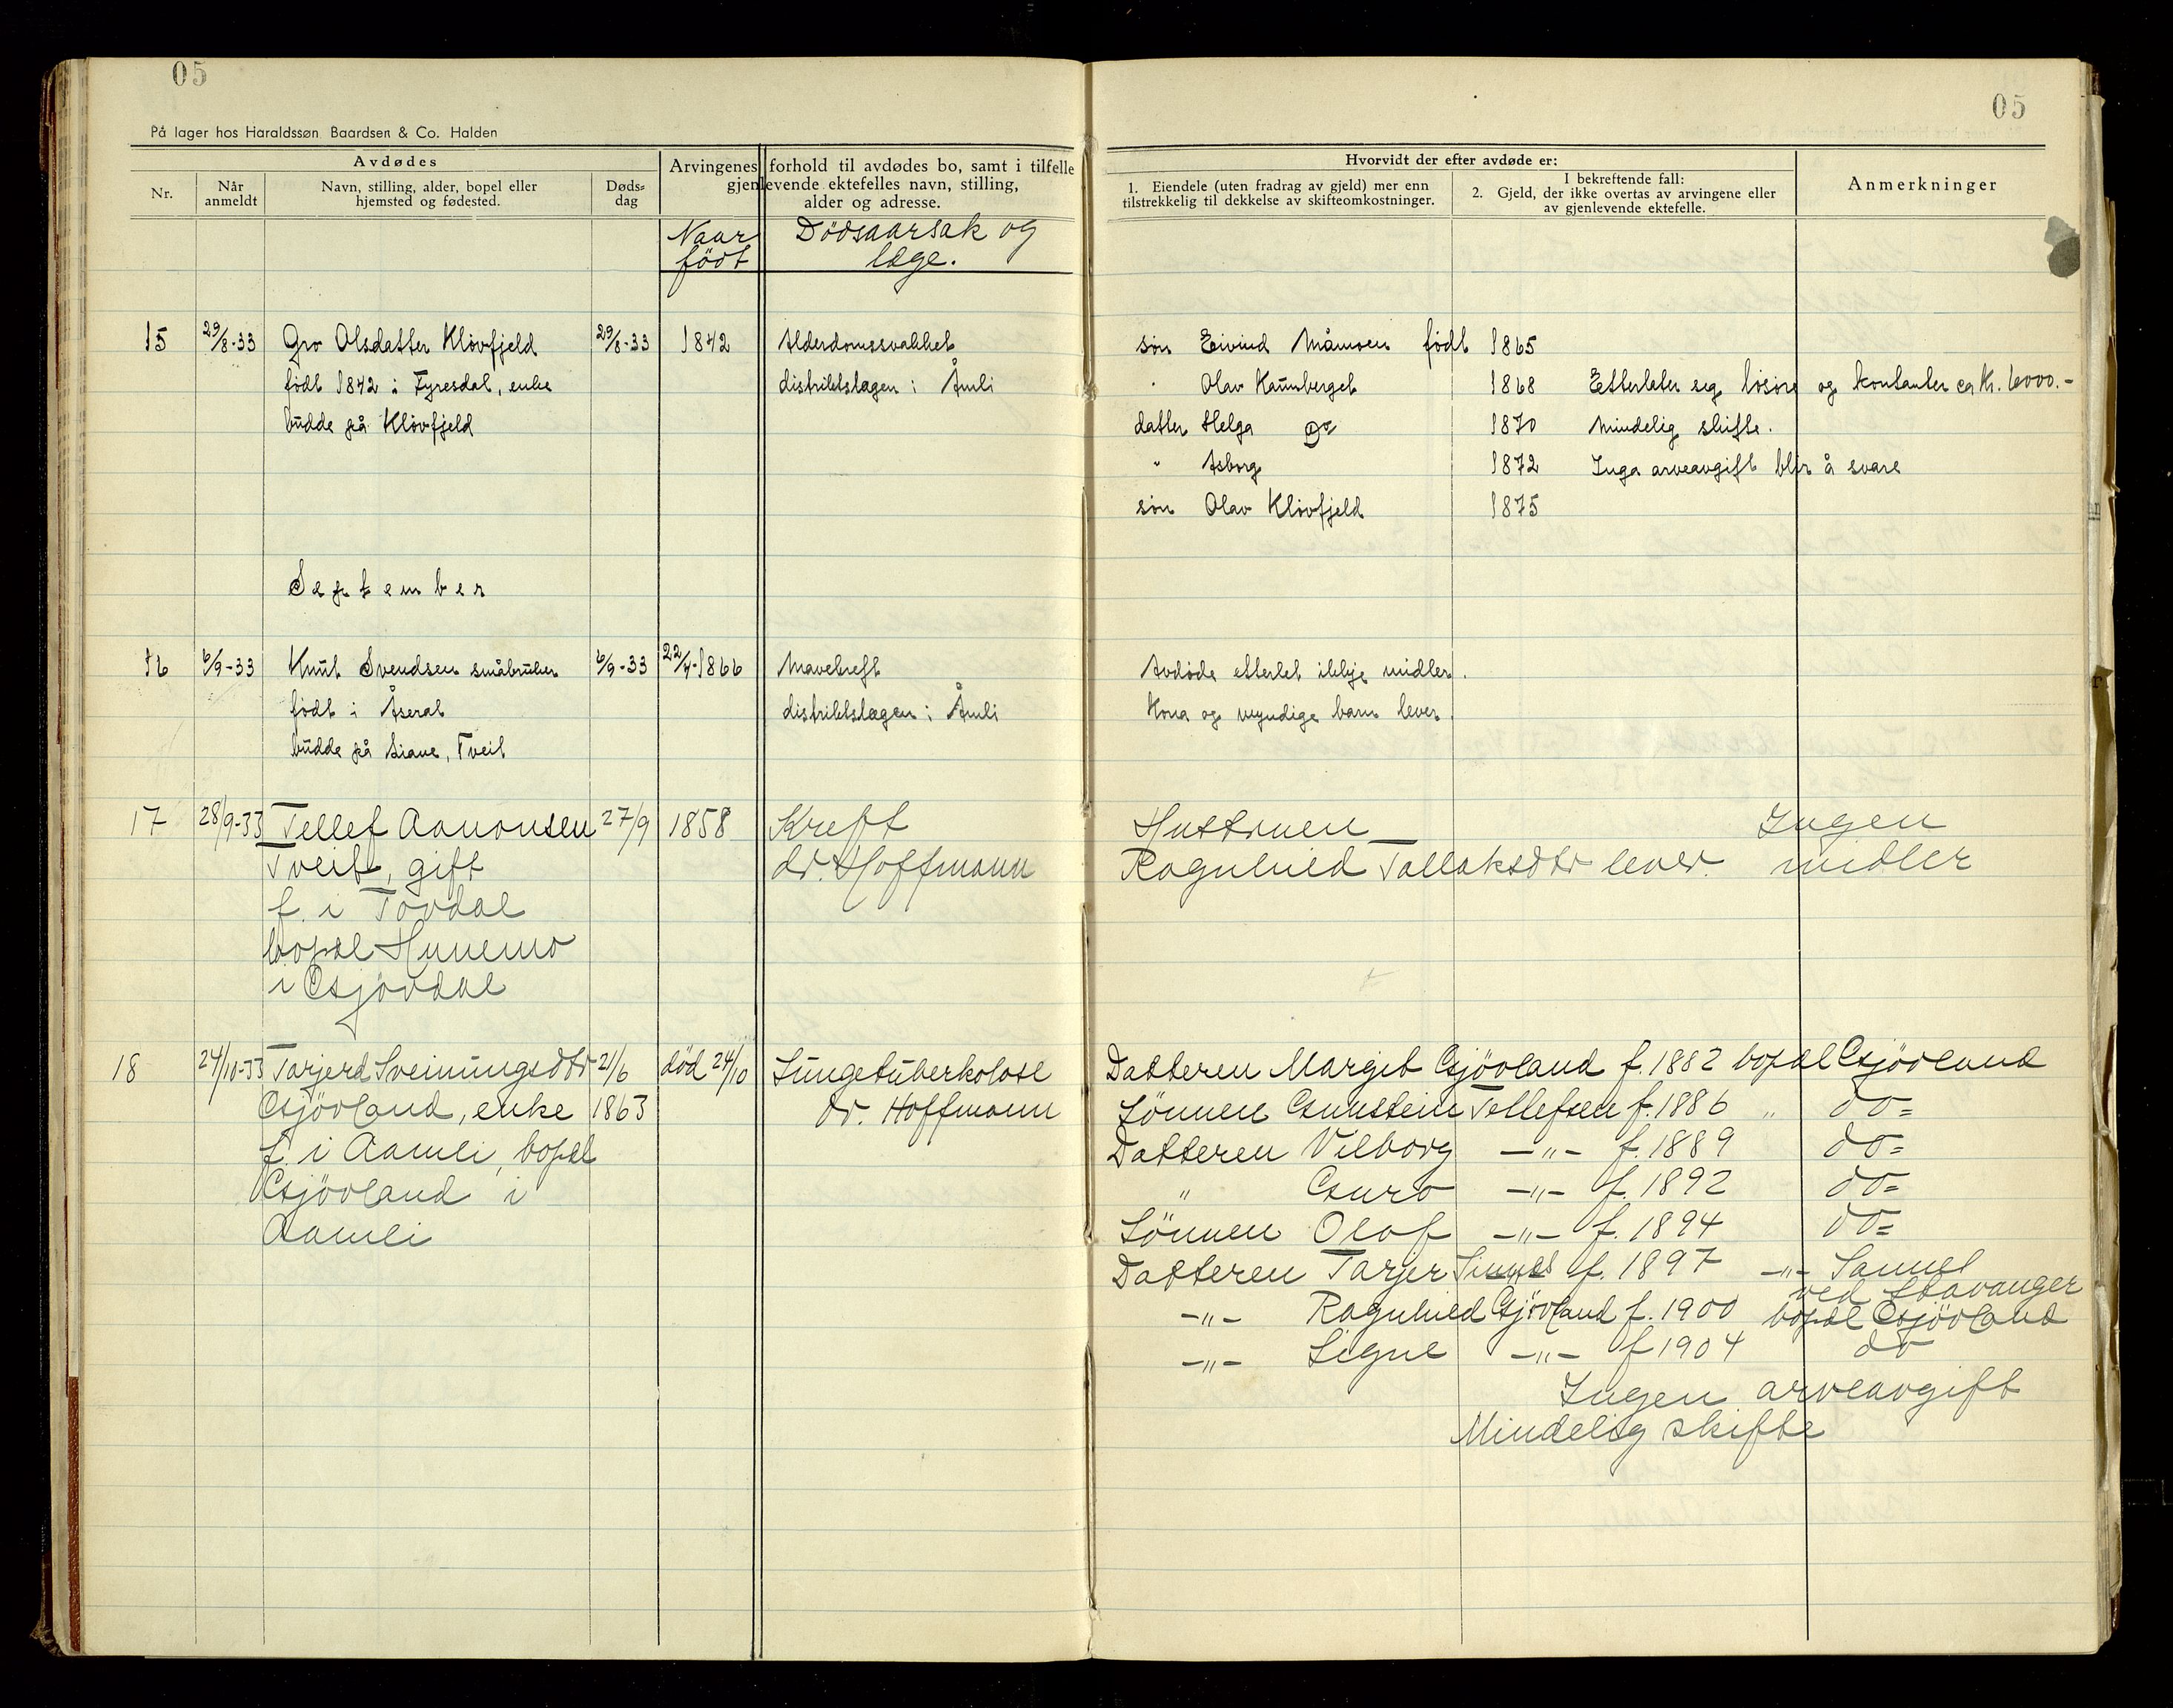 05
05
På lager hos Haraldssøn Baardsen & Co. Halden
Avdødes
Nr.
Når anmeldt
Navn, stilling, alder, bopel eller hjemsted og fødested.
Døds-dag
Arvingenes forhold til avdødes bo, samt i tilfelle
gjenlevende ektefelles navn, stilling,
alder og adresse.
Hvorvidt der efter avdøde er:
1. Eiendele (uten fradrag av gjeld) mer enn
tilstrekkelig til dekkelse av skifteomkostninger.
I bekreftende fall:
2. Gjeld, der ikke overtas av arvingene eller
av gjenlevende ektefelle.
Anmerkninger
Naar född
Dödsaarsak og
læge.
15 29/8-33 Gro Olsdatter Klövfjeld 29/8-33 1842 Alderdomssvakhet
født 1842 i Fyresdal, enke distriktslægen i Åmli
budde på Klövfjeld
sön Eivind Måmoen født 1865
" Olav Kaumberget 1868 Etterleter seg lösöre og kontanter ca kr. 6000.-
datter Helga do 1870 Mindelig skifte.
" Asborg 1872 Inga arveavgift blir å svare
sön Olav Klövfjeld 1875
September
16 6/9-33 Knut Svendsen småbruker 6/9-33 22/4-1866 Mavekreft
født i Åseral distriktslægen i Åmli
budde på Liane, Tveit
Avdöde etterlet ikkje midler.
Kona og myndige barn lever.
17 28/9-33 Tellef Aanonsen 27/9 1858 Kreft
Tveit, gift dr. Hoffmann
f. i Tovdal
bopel Hunemo
i Gjövdal
Hustruen Ingen
Ragnhild Tallaksdtr lever. midler
18 24/10-33 Tarjerd Sveinungsdtr 21/6 död 24/10 Lungetuberkolose
Gjövland, enke 1863 dr. Hoffmann
f. i Aamli, bopel
Gjövland i
Aamli
Datteren Margit Gjövland f. 1882 bopel Gjövland
Sönnen Gunstein Tellefsen f. 1886 " do=
Datteren Vilborg —"— f. 1889 do=
" Guro —"— f. 1892 do=
Sönnen Olaf —"— f. 1894 do=
Datteren Tarjer f. 1897 —"—
ved Stavanger
—"— Ragnhild Gjövland f. 1900 bopel Gjövland
—"— Signe —"— f 1904 do
Ingen arveavgift
Mindelig skifte